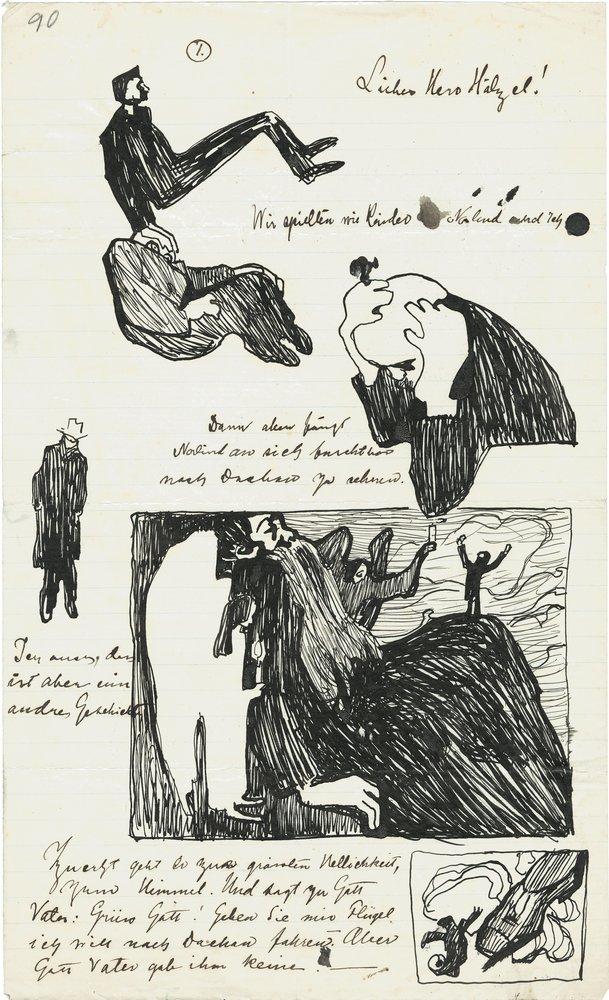 90
1.
Lieber Herr Hölzel!
Wir spielten wie Kinder Nolind und Ich
Dann aber fängt
Nolind an sich furchtbar
nach Dachau zu sehnen.
Ich auch, das
ist aber ein
andre Geschicht
Zuerst geht er zum grössten Hellichkeit,
zum Himmel. Und sagt zu Gott
Vater: Grüss Gott! Geben Sie mir Flügel
ich will nach Dachau fahren. Aber
Gott Vater gab ihm keine.